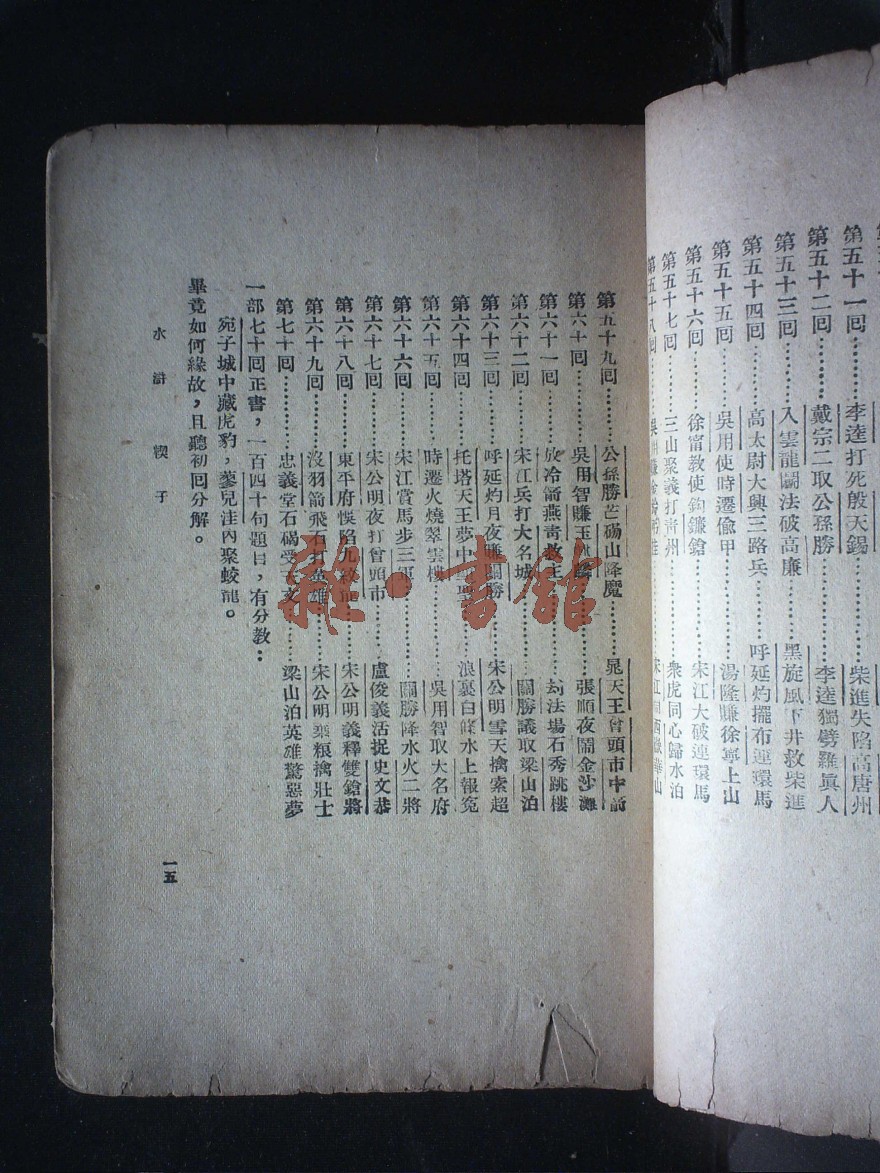 第五十一回………李逵打死殷天錫………柴進失陷高唐州
第五十二回………戴宗二取公孫勝………李逵獨劈羅眞人
第五十三回………入雲龍鬭法破高廉………黑旋風下井救柴進
第五十四回………高太尉大興三路兵………呼延灼擺布連環馬
第五十五回………吳用使時遷偸甲………湯隆賺徐寧上山
第五十六回………徐甯教使鈎鐮鎗………宋江大破連環馬
第五十七回………三山聚義打靑州………衆虎同心歸水泊
第五十八回………吳用賺金鈴吊挂………宋江鬧西嶽華山
第五十九回………公孫勝芒碭山降魔………晁天王曾頭市中箭
第六十回………吳用智賺玉麒麟………張順夜鬭金沙灘
第六十一回………放冷箭燕靑救主………刼法場石秀跳樓
第六十二回………宋江兵打大名城………關勝議取梁山泊
第六十三回………呼延灼月夜賺關勝………宋公明雪天擒索超
第六十四回………托塔天王夢中顯聖………浪裏白條水上報寃
第六十五回………時遷火燒翠雲樓………吳用智取大名府
第六十六回………宋江賞馬步三軍………關勝降水火二將
第六十七回………宋公明夜打曾頭市………盧俊義活捉史文恭
第六十八回………東平府悞陷九紋龍………宋公明義釋雙鎗將
第六十九回………沒羽箭飛石打英雄………宋公明棄糧擒壯士
第七十回………忠義堂石碣受天文………梁山泊英雄驚惡夢
一部七十回正書，一百四十句題目，有分教：
宛子城中藏虎豹，蓼兒洼內聚蛟龍。
畢竟如何緣故，且聽初回分解。
水滸 楔子
一五
雜·書館